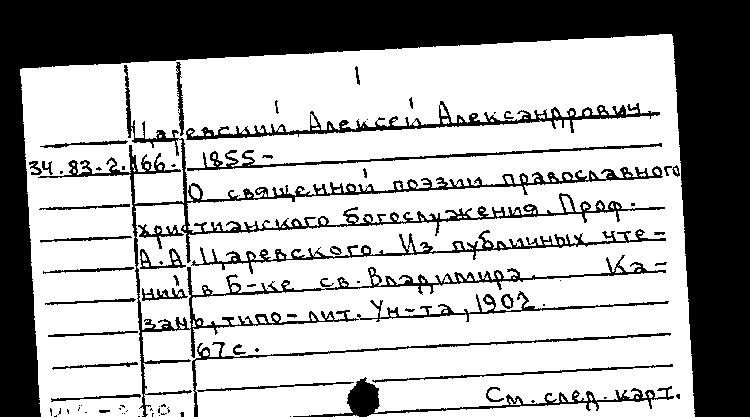 Царевский, Алексей Александрович,
34.83.2.166. 1855-
О священной поэзии православного
христианского богослужения. Проф.
А.А.Царевского. Из публичных чте-
ний в Б-ке св. Владимира. Ка-
зань, типо-лит. Ун-та, 1902.
67 с.
См. след. карт.